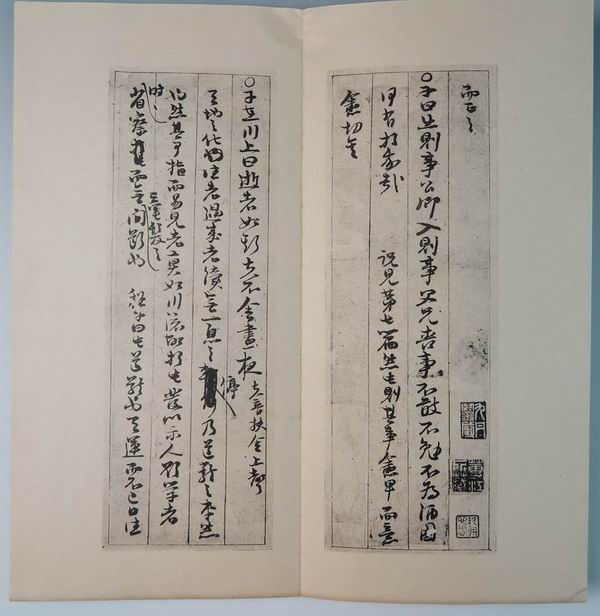 而正之
○子曰出則事公卿入則事父兄喪事不敢不勉不為酒困
何有於我哉 說見第七篇然此則其事愈卑而意
愈切矣
○子在川上曰逝者如斯夫不舍晝夜 夫音扶舍上聲
天地之化往者過來者續無一息之停乃道體之本然
也然其可指而易見者莫如川流故於此發以示人欲學者
時時省察而無毫髮之間斷也 程子曰此道體也天運而不已日往